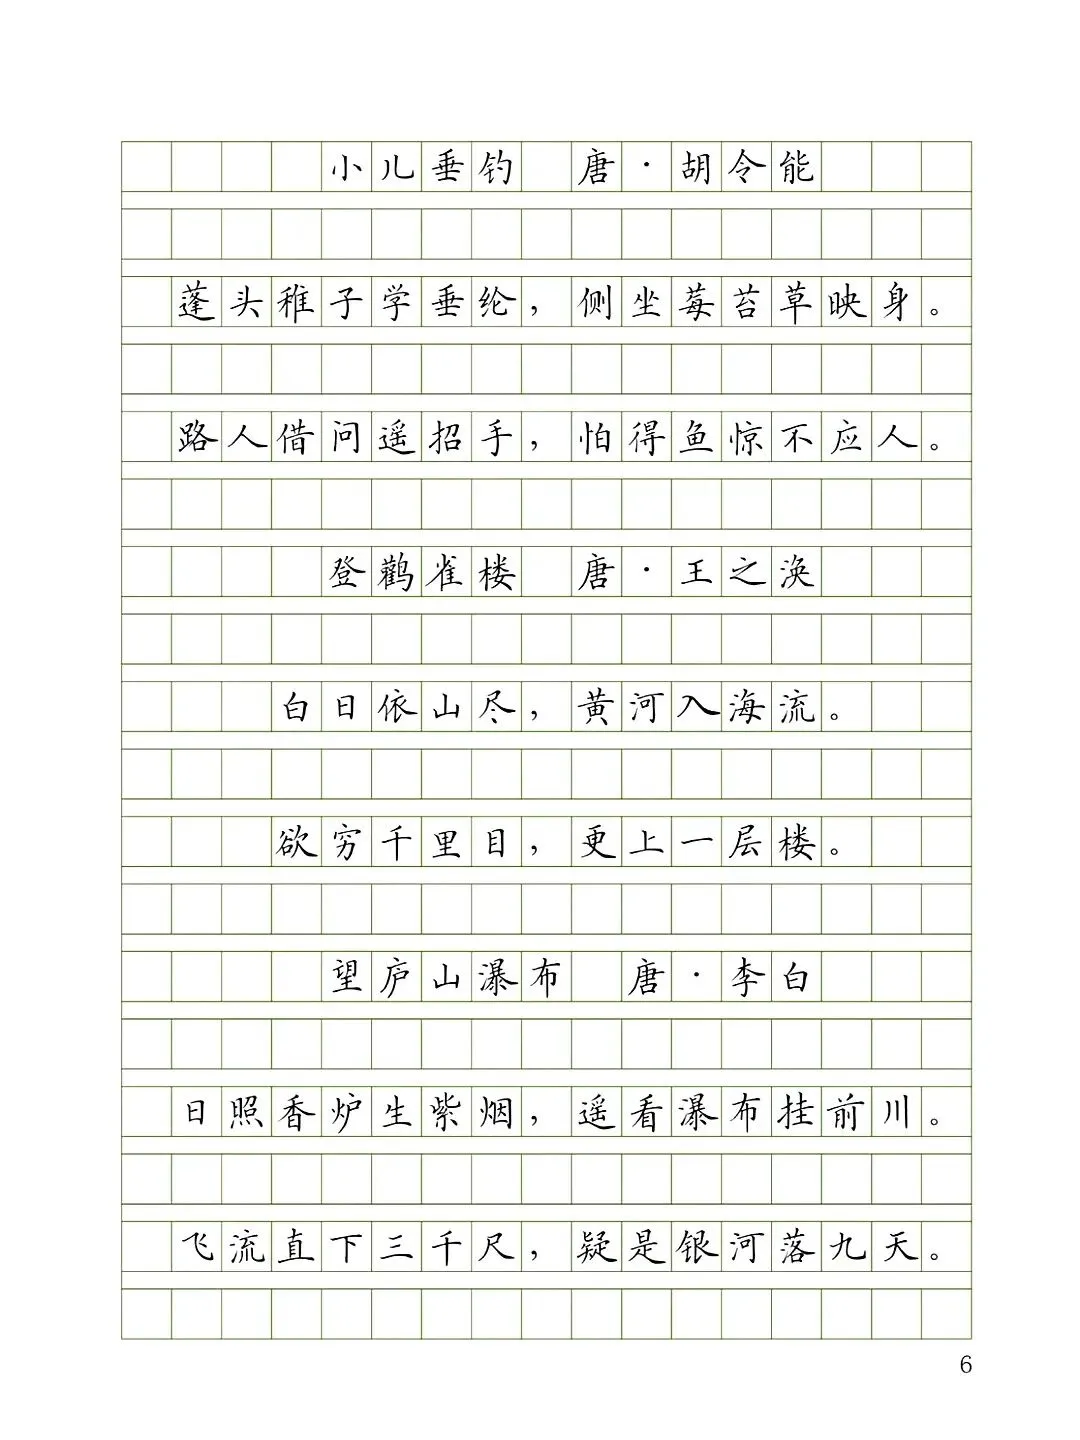 小儿垂钓 唐·胡令能
蓬头稚子学垂纶，侧坐莓苔草映身。
路人借问遥招手，怕得鱼惊不应人。
登鹳雀楼 唐·王之涣
白日依山尽，黄河入海流。
欲穷千里目，更上一层楼。
望庐山瀑布 唐·李白
日照香炉生紫烟，遥看瀑布挂前川。
飞流直下三千尺，疑是银河落九天。
6